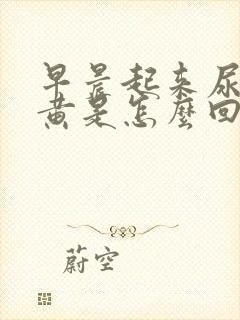 早晨起来尿
黄是怎麼回
蔚空